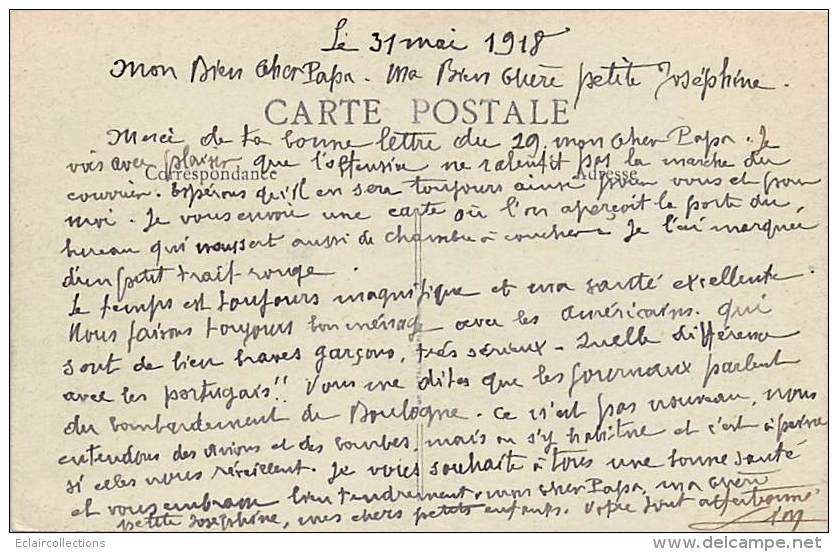 Le 31 mai 1918
Mon Bien Cher Papa. Ma Bien Chère petite Joséphine.
CARTE POSTALE
Merci de ta bonne lettre du 29, mon cher Papa. Je
vois avec plaisir que l'offensive ne ralentit pas la marche du
Correspondance
Adresse
courrier. Espérons qu'il en sera toujours ainsi pour vous et pour
moi. Je vous envoie une carte où l'on aperçoit la porte du
bureau qui nous sert aussi de chambre à coucher. Je l'ai marquée
d'un petit trait rouge.
Le temps est toujours magnifique et ma santé excellente.
Nous faisons toujours bon ménage avec les américains. qui
sont de bien braves garçons, très sérieux - Quelle différence
avec les portugais!! Vous me dites que les journaux parlent
du bombardement de Boulogne. Ce n'est pas nouveau, nous
entendons des avions et des bombes, mais on s'y habitue et c'est à peine
si elles nous réveillent. Je vous souhaite à tous une bonne santé
et vous embrasse bien tendrement, mon cher Papa, ma chère
petite Joséphine, mes chers petits enfants. Votre tout affectionné
Eclaircollections
www.delcampe.net